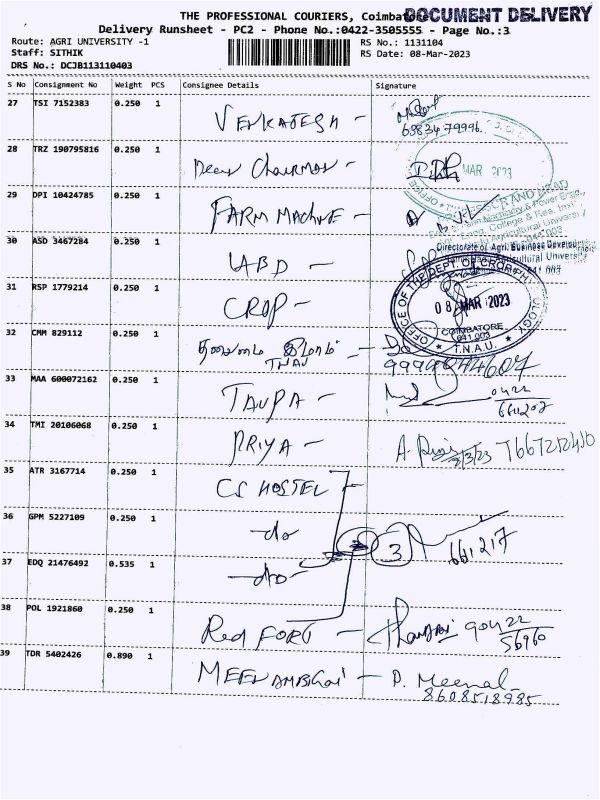 THE PROFESSIONAL COURIERS, Coimbatore
DOCUMENT DELIVERY
Delivery Runsheet - PC2 - Phone No.:0422-3505555 - Page No.:3
Route: AGRI UNIVERSITY -1
RS No.: 1131104
Staff: SITHIK
RS Date: 08-Mar-2023
DRS No.: DCJB113110403
S No Consignment No Weight PCS Consignee Details Signature
27 TSI 7152383 0.250 1 VENKATESH -
63834 79996
28 TRZ 190795816 0.250 1 Dean Chairman -
MAR 2023
29 DPI 10424785 0.250 1 FARM MACHINE -
30 ASD 3467284 0.250 1 ABD -
Directorate of Agri. Business Development
31 RSP 1779214 0.250 1 CROP -
OFFICE OF THE DEPT. OF CROP PHYSIOLOGY
08 MAR 2023
COIMBATORE
641 003
T.N.A.U.
32 CMM 829112 0.250 1
TNAU
33 MAA 600072162 0.250 1 TAUPA -
0422
34 TMI 20106068 0.250 1 PRIYA -
35 ATR 3167714 0.250 1 CS HOSTEL
36 GPM 5227109 0.250 1 -do-
3
661217
37 EDQ 21476492 0.535 1 -do-
38 POL 1921860 0.250 1 Red FORT -
39 TDR 5402426 0.890 1 MEENAMBIGAI - P. Meenal
8608518985